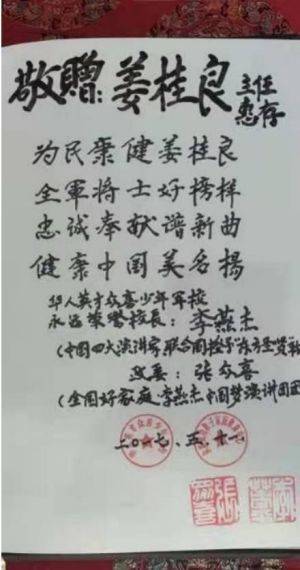 敬贈:姜桂良主任
惠存
为民康健姜桂良
全軍将士好榜样
忠诚奉献谱新曲
健康中国美名揚
华人英才众喜少年军校
永远荣誉校長:李燕杰
(中国四大演讲家、联合国授予"东方圣贤"称
政委:张众喜
(全国好家庭、李燕杰中国梦演讲团团
二〇一七、五、十一